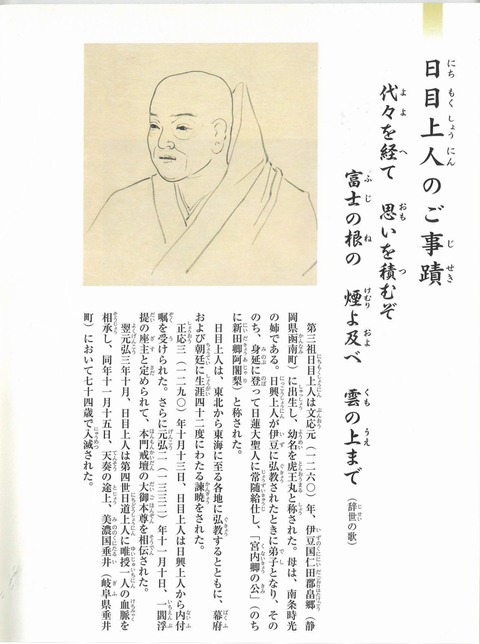 日目上人のご事蹟
代々を経て　思いを積むぞ
富士の根の　煙よ及べ　雲の上まで
(辞世の歌)
第三祖日目上人は文応元(一二六〇)年、伊豆国仁田郡畠郷(静
岡県函南町)に出生し、幼名を虎王丸と称された。母は、南条時光
の姉である。日興上人が伊豆に弘教されたときに弟子となり、その
のち、身延に登って日蓮大聖人に常随給仕し、「宮内卿の公」(のち
に新田卿阿闍梨)と称された。
日目上人は、東北から東海に至る各地に弘教するとともに、幕府
および朝廷に生涯四十二度にわたる諫暁をされた。
正応三(一二九〇)年十月十三日、日目上人は日興上人から内付
嘱を受けられた。さらに元弘二(一三三二)年十一月十日、一閻浮
提の座主と定められて、本門戒壇の大御本尊を相伝された。
翌元弘三年十月、日目上人は第四世日道上人に唯授一人の血脈を
相承し、同年十一月十五日、天奏の途上、美濃国垂井(岐阜県垂井
町)において七十四歳で入滅された。